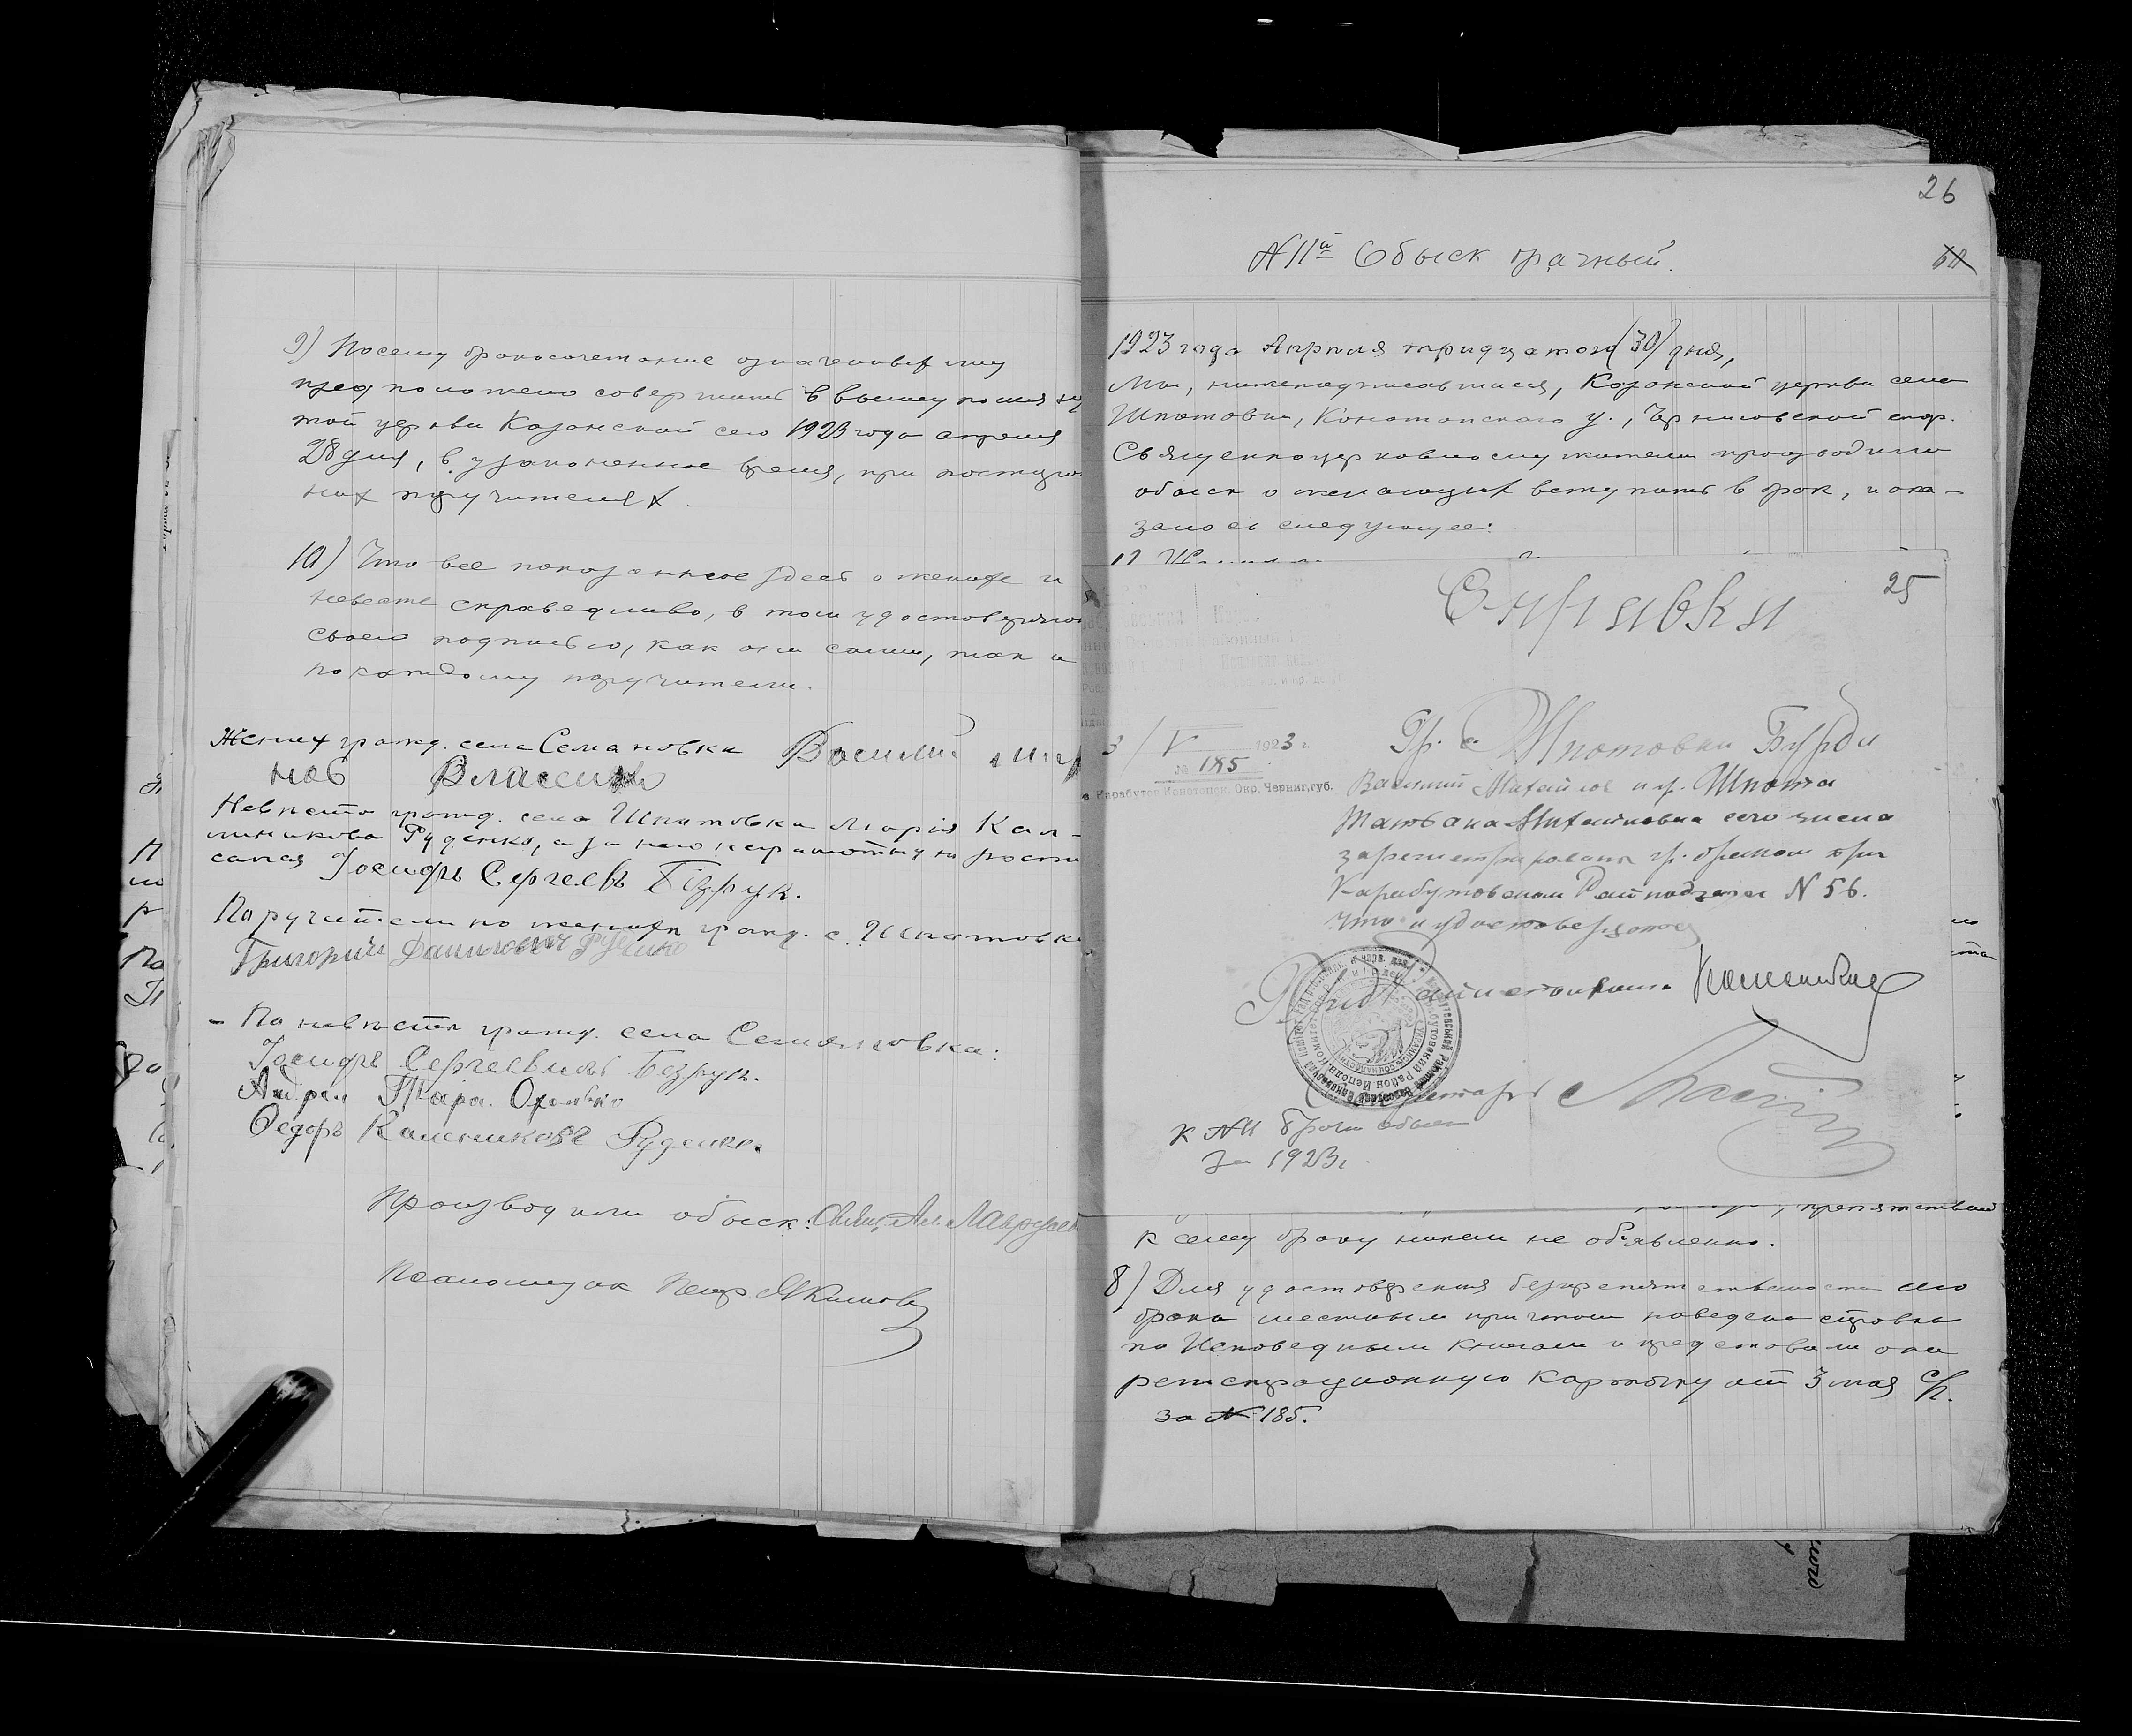 9) Посему бракосочетание означенных лиц
предположено совершить в вышеупомяну
той церкви Казанской сего 1923 года апреля
28 дня, в узаконенное время, при посторон
них поручителях.
10) Что все показанное здесь о женихе и
невесте справедливо, в том удостоверяют
своею подписью, как они сами, так и
по каждому поручители.
Жених гражд. села Семяновка Василий
нов Власенко
Невеста гражд. села Шпотовки Мария Кал-
линикова Руденко, а за нею неграмотную роспи
сался Іосифъ Сергеевъ Безрук.
Поручители по женихе гражд. с. Шпотовки
Григорий Данилович Руденко
- По невесте гражд. села Семяновка:
Іосифъ Сергеевичъ Безрук.
Андрей
Федоръ Каленикович Руденко.
Производили обыск: Свящ. Ал.
Псаломщик Петр Якимов
26
N 11й Обыск брачный.
1923 года Апреля тридцатого (30) дня,
Мы, нижеподписавшиеся, Казанской церкви села
Шпотовки, Конотопского у., Черниговской епар.
Священноцерковнослужители производили
обыск о желающих вступить в брак, и ока-
залось следующее:
25
Справка
3/V 1923 г.
№ 185
Карабутов Конотопск. Окр. Черниг. губ.
Гр. с. Шпотовки Бурди
Василий Михайлов и гр. Шпота
Татьяна Михайловна сего числа
зарегистрированы гр. браком при
Карабутовском Райподзагсе N 56.
Что и удостоверяется
К N 11 брачн обыск
за 1923 г.
препятствий
к сему браку никем не объявлено.
8) Для удостоверения безпрепятственности сего
брака местным причтом поведена справка
по Исповедным книгам и представили они
регистрационную карточку от 3 мая с/г.
за N 185.